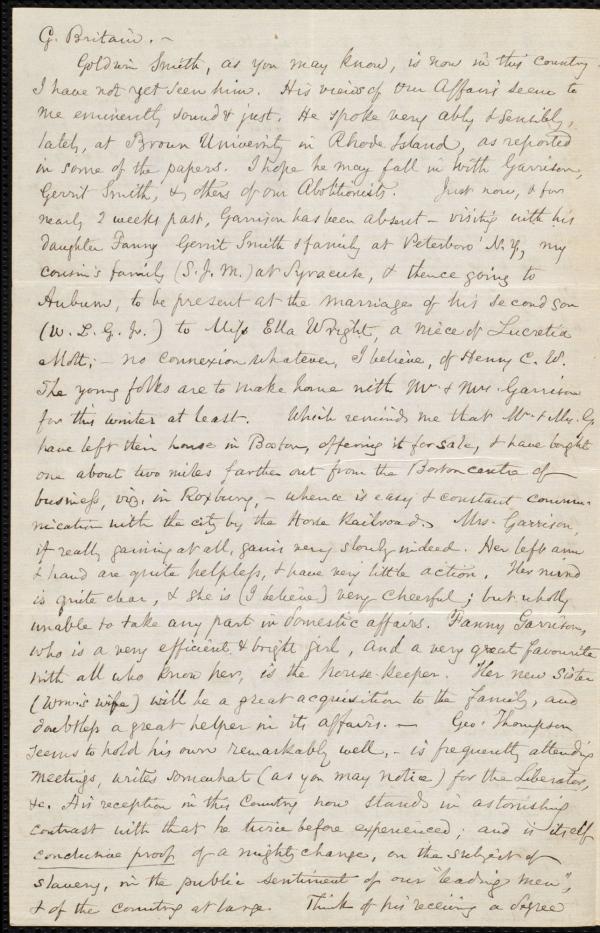 G. Britain. –
Goldwin Smith, as you may know, is now in this country.
I have not yet seen him. His views of our Affairs seem to
me eminently sound & just. He spoke very ably & sensibly,
lately, at Brown University in Rhode Island, as reported
in some of the papers. I hope he may fall in with Garrison,
Gerrit Smith, & others of our Abolitionists. Just now, & for
nearly 2 weeks past, Garrison has been absent – visiting with his
daughter Fanny Gerrit Smith & family at Peterboro' N.Y., my
cousin's family (S. J. M.) at Syracuse, & thence going to
Auburn, to be present at the marriage of his second son
(W. L. G. Jr.) to Miss Ella Wright, a niece of Lucretia
Mott; – no connexion whatever, I believe, of Henry C. W.
The young folks are to make home with Mr. & Mrs. Garrison
for this winter at least. Which reminds me that Mr. & Mrs. G.
have left their house in Boston, offering it for sale, & have bought
one about two miles farther out from the Boston centre of
business, viz. in Roxbury, – whence is easy & constant commu-
nication with the city by the Horse Railroad. Mrs. Garrison,
if really gaining at all, gains very slowly indeed. Her left arm
& hand are quite helpless, & have very little action. Her mind
is quite clear, & she is (I believe) very cheerful; but wholly
unable to take any part in domestic affairs. Fanny Garrison,
who is a very efficient & bright girl, and a very great favourite
with all who know her, is the house-keeper. Her new sister
(Wm's wife) will be a great acquisition to the family, and
doubtless a great helper in its affairs. – Geo. Thompson
seems to hold his own remarkably well, – is frequently attending
meetings, writes somewhat (as you may notice) for the Liberator,
&c. His reception in this Country now stands in astonishing
contrast with that he twice before experienced; and is itself
conclusive proof of a mighty change, on the subject of
slavery, in the public sentiment of our "leading men",
& of the country at large. Think of his receiving a degree